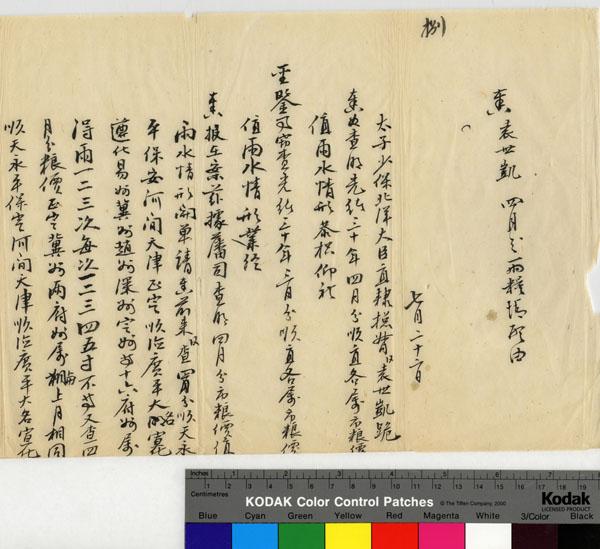 捌
奏 袁世凱 四月分雨糧情形由
七月二十
太子少保北洋大臣直隸摠督臣袁世凱跪
奏為查明光緒三十年四月分順直各屬市糧價
值雨水情形恭摺仰祈
聖鑒事竊查光緒三十年三月分順直各屬市糧價
值雨水情形業經
奏報在案茲據藩司查明四月分市粮價值
雨水情形開單請奏前來臣查四月分順天永
平保安河間天津正定順德廣平大名宣化
遵化易州冀州趙州深州定州等十六府州屬
得雨一二三次每次一二三四五寸不等又查四
月分粮價正定冀州兩府州屬上月相同
順天永平保定河間天津順德廣平大名宣化
Inches
Centimetres
KODAK Color Control Patches
© The Tiffen Company, 2000
Kodak
LICENSED PRODUCT
Blue Cyan Green Yellow Red Magenta White 3/Color Black